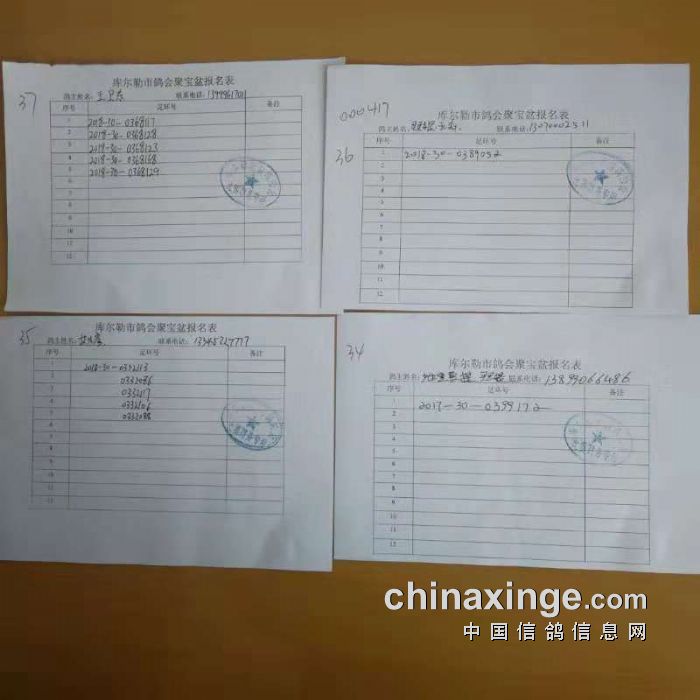 37
库尔勒市鸽会聚宝盆报名表
鸽主姓名: 联系电话:
序号 足环号 备注
1 2018-30-0368117
2 2018-30-0368128
3 2018-30-0368123
4 2018-30-0368168
5 2018-30-0368129
6
7
8
9
10
11
12
000417
36
库尔勒市鸽会聚宝盆报名表
鸽主姓名: 联系电话:
序号 足环号 备注
1 2018-30-0389052
2
3
4
5
6
7
8
9
10
11
12
35
库尔勒市鸽会聚宝盆报名表
鸽主姓名: 联系电话:
序号 足环号 备注
1 2018-30-0332113
2 0332086
3 0332117
4 0332106
5 0332088
6
7
8
9
10
11
12
34
库尔勒市鸽会聚宝盆报名表
鸽主姓名: 联系电话: 13899066486
序号 足环号 备注
1 2017-30-0399172
2
3
4
5
6
7
8
9
10
11
12
chinaxinge.com
中国信鸽信息网